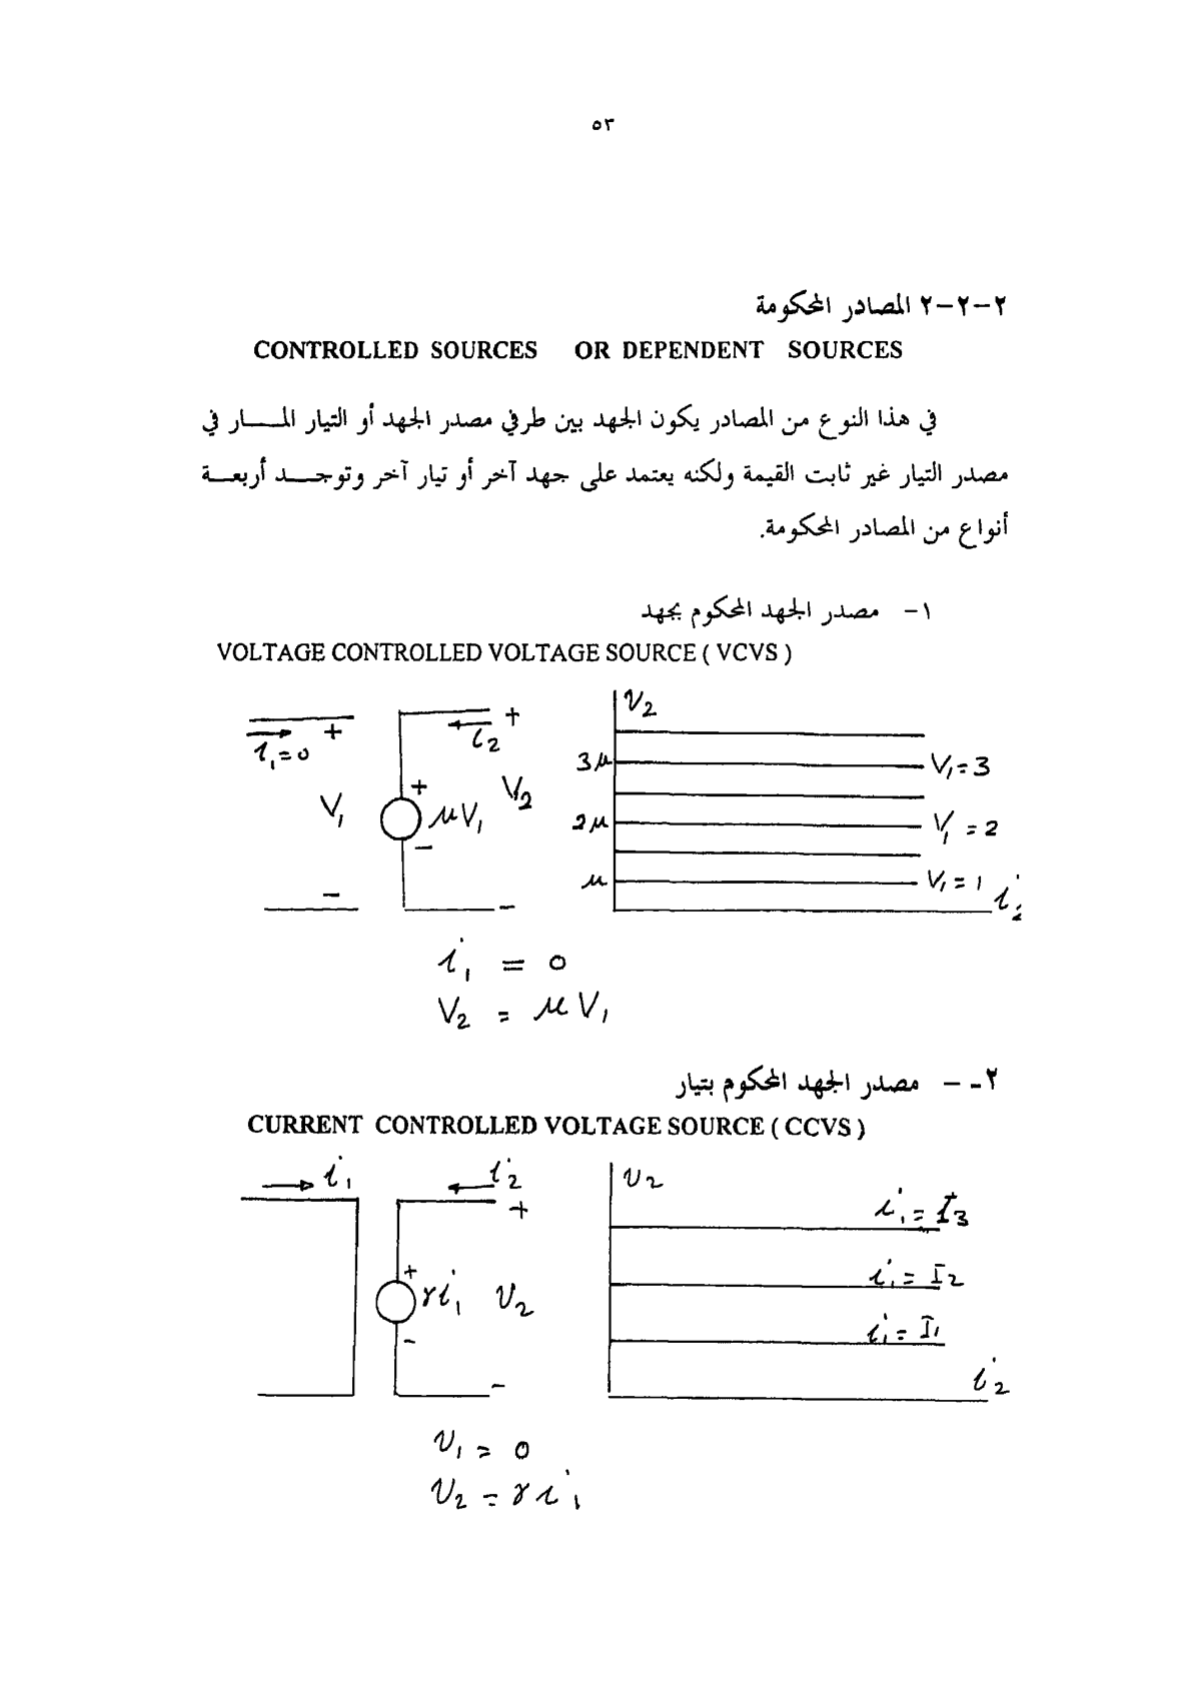 ٥٣
٢-٢-٢ المصادر المحكومة
CONTROLLED SOURCES OR DEPENDENT SOURCES
في هذا النوع من المصادر يكون الجهد بين طرفي مصدر الجهد أو التيار المـــار في
مصدر التيار غير ثابت القيمة ولكنه يعتمد على جهد آخر أو تيار آخر وتوجـــد أربعـــة
أنواع من المصادر المحكومة.
١- مصدر الجهد المحكوم بجهد
VOLTAGE CONTROLLED VOLTAGE SOURCE ( VCVS )
i₁=0
+
V₁
-
+
μV₁
-
i₂
+
V₂
-
V₂
3μ
V₁=3
2μ
V₁ = 2
μ
V₁ = 1
i₂
i₁ = 0
V₂ = μV₁
٢- - مصدر الجهد المحكوم بتيار
CURRENT CONTROLLED VOLTAGE SOURCE ( CCVS )
i₁
i₂
+
+
γi₁
-
V₂
-
V₂
i₁ = I₃
i₁ = I₂
i₁ = I₁
i₂
V₁ = 0
V₂ = γi₁